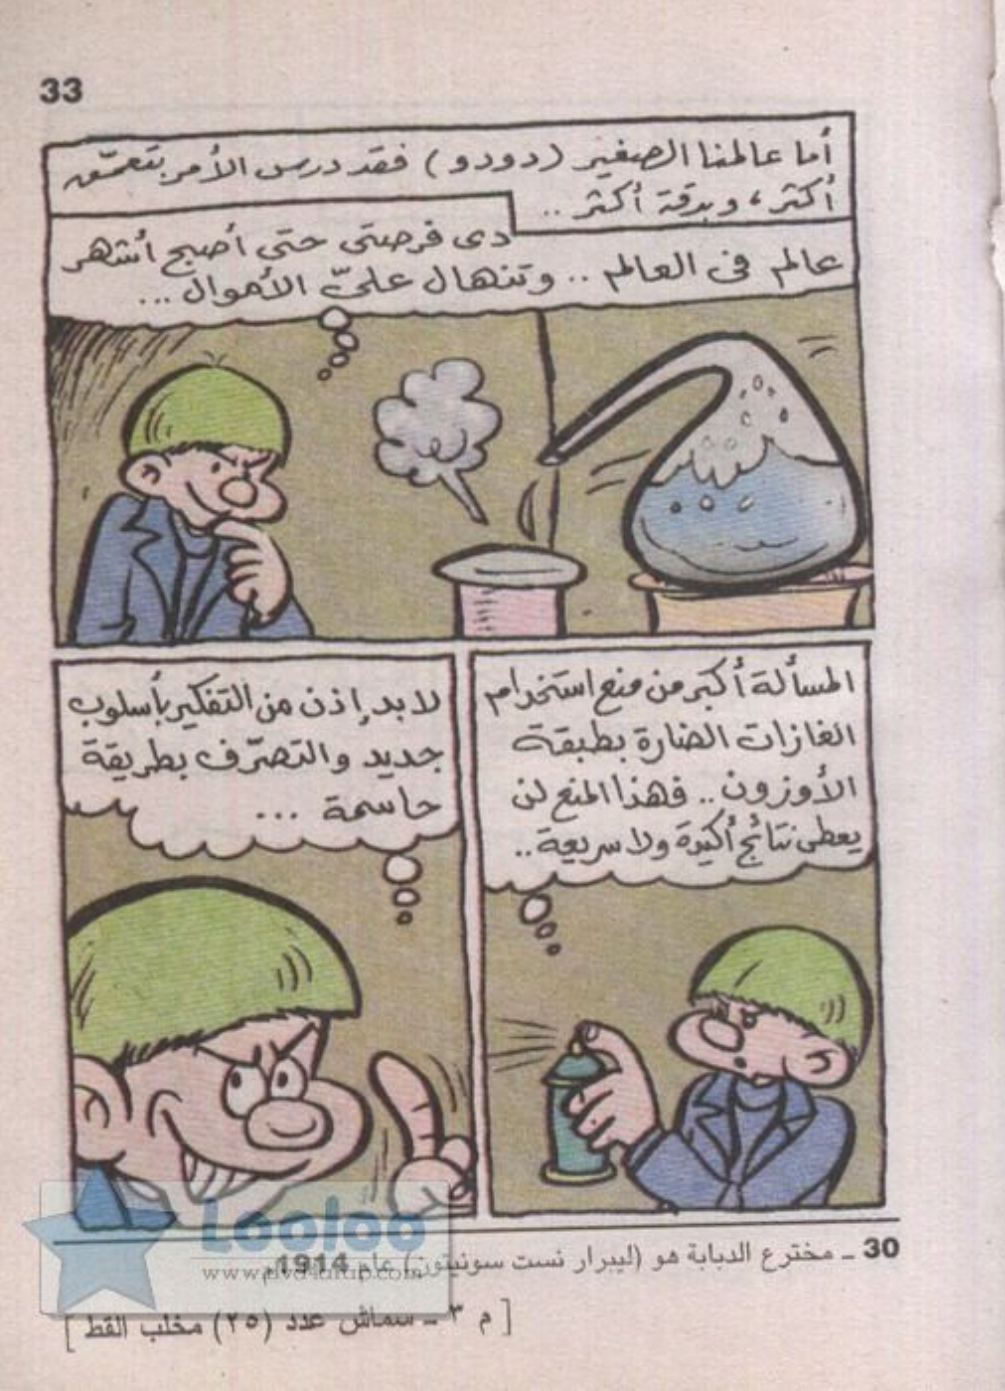 33
أما عالمنا الصغير (دودو) فقد درس الأمر بتعمّق
أكثر، وبدقة أكثر ..
دى فرصتى حتى أصبح أشهر
عالم فى العالم .. وتنهال علىّ الأموال ...
المسألة أكبر من منع استخدام
الغازات الضارة بطبقة
الأوزون .. فهذا المنع لن
يعطى نتائج أكيدة ولا سريعة ..
لابد إذن من التفكير بأسلوب
جديد والتصرّف بطريقة
حاسمة ...
30 ــ مخترع الدبابة هو (ليبرار نست سونيتون) عام 1914.
Looloo
www.dvd4arab.com
[ م ٣ ــ سماش عدد (٢٥) مخلب القط ]